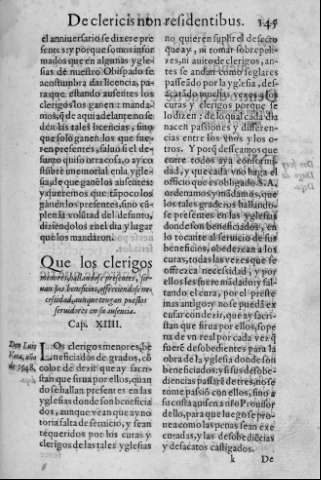 De clericis non residentibus. 145
el anniuersario se dixere pre
sentes: y porque somos infor
mados que en algunas ygle-
sias de nuestro Obispado se
acostumbra dar licencia, pa-
ra que estando ausentes los
clerigos los ganen: manda-
mos, q̃ de aqui adelante no se
den las tales licencias, sino
que solo ganen los que fue-
ren presentes, saluo si el de-
functo quiso otra cosa, o ay co
stũbre immemorial en la ygle-
sia, de que ganẽ los ausentes
y queremos que tãpoco los
ganẽ los presentes, sino cũ-
plen la volũtad del defunto,
diziendolos en el dia y lugar
que los mandaron.
Que los clerigos
menores, hallandose presentes, sir-
uan sus beneficios, offreciendose ne-
cessidad, aunque tengan puestos
seruidores en su ausencia.
Cap. XIIII.
Don Luis
Vaca, año
de 1548.
LOs clerigos menores, be
neficiados de grados, cõ
color de dezir que ay sacri-
stan que sirua por ellos, quan
do se hallan presentes en las
yglesias donde son beneficia
dos, aunque vean que ay no-
toria falta de seruicio, y sean
requeridos por sus curas y
clerigos de las tales yglesias
no quieren suplir el defecto
que ay, ni tomar sobrepelli-
zes, ni auito de clerigos, an-
tes se andan como seglares
passeãdo por la yglesia,
curas y clerigos porque se
lo dizen: de lo qual cada dia
nacen passiones y differen-
cias entre los vnos y los o-
tros. Y porq̃ desseamos que
entre todos aya conformi-
dad, y que cada vno haga el
officio que es obligado. S. A.
ordenamos y mãdamos, que
los tales graderos hallando-
se presentes en las yglesias
donde son beneficiados, en
lo tocante al seruicio de sus
beneficios, obedezcan a los
curas, todas las vezes que se
offrezca necessidad, y por
ellos les fuere mãdado: y fal-
tando el cura, por el preste
mas antiguo: y no se pueda ex
cusar con dezir, que ay sacri-
stan que sirua por ellos, so pe
na de vn real por cada vez q̃
fuerẽ desobedientes para la
obra de la yglesia donde son
beneficiados: y si sus desobe-
diencias passarẽ de tres, no se
tome passiõ con ellos, sino a
su costa auisen a nr̃o Prouisor
dello, para que luego se pro-
uea como las penas sean exe
cutadas, y las desobediẽcias
y desacatos castigados.
k De